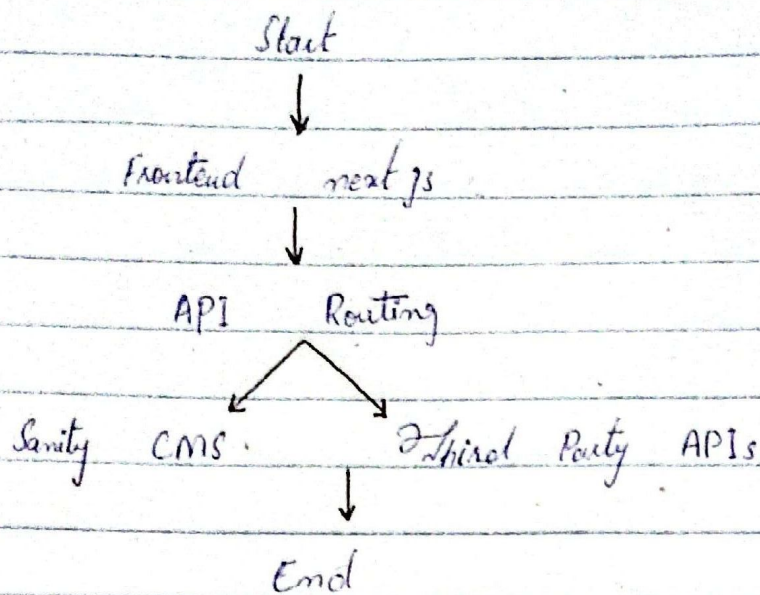 Start
Frontend next js
API Routing
Sanity CMS. Third Party APIs
End